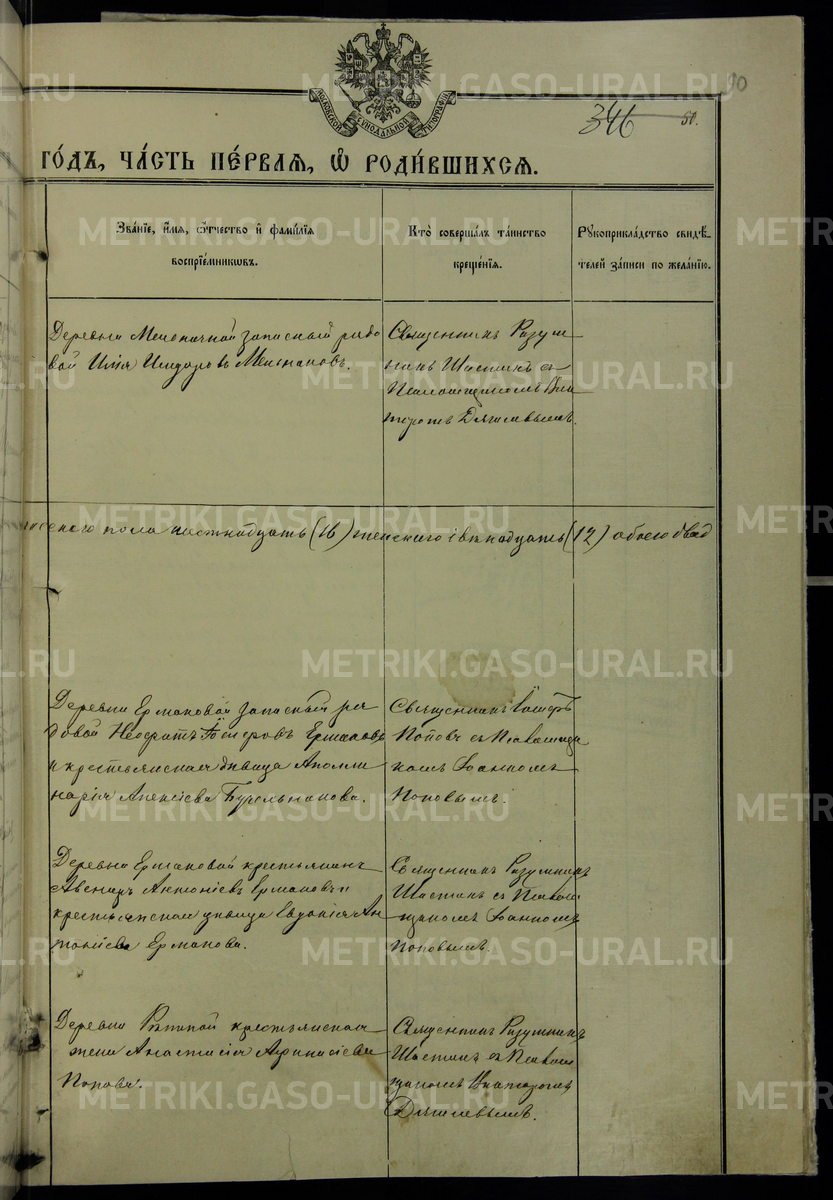 МОСКОВСКОЙ СѴНОДАЛЬНОЙ ТѴПОГРАФІИ
346 50.
ГО́ДЪ, ЧА́СТЬ ПЕ́РВАЯ, Ѽ РОДИ́ВШИХСЯ.
Зва́ніе, и҆́мя, ѻ҆́тчество и҆ фами́лія
воспріе́мниковъ.
Кто̀ соверша́лъ та́инство
креще́нія.
Рꙋкоприкла́дство свидѣ́-
телей за́писи по жела́нію.
Деревни Мельничной запасный рядо
вой Илія Исидоровъ
Священникъ Разум
никъ Шастинъ съ
Псаломщикомъ Вик
торомъ Дягилевымъ.
пола шестнадцать (16) женскаго двѣнадцать (12) обоего двад
Деревни Ермаковой запасный ря
довой Ермаковъ
и крестьянская дѣвица Аполли
нарія Алексіева
Священникъ
Поповъ съ Псаломщи
комъ Іоанномъ
Поповымъ.
Деревни Ермаковой крестьянинъ
Антоніевъ Ермаковъ и
крестьянская дѣвица Евдокія Ан
тоніева Ермакова.
Священникъ Разумникъ
Шастинъ съ Псалом
щикомъ Іоанномъ
Поповымъ.
Деревни крестьянская
жена Анастасія Афанасіева
Попова.
Священникъ Разумникъ
Шастинъ съ Псалом
щикомъ Викторомъ
Дягилевымъ.
METRIKI.GASO-URAL.RU